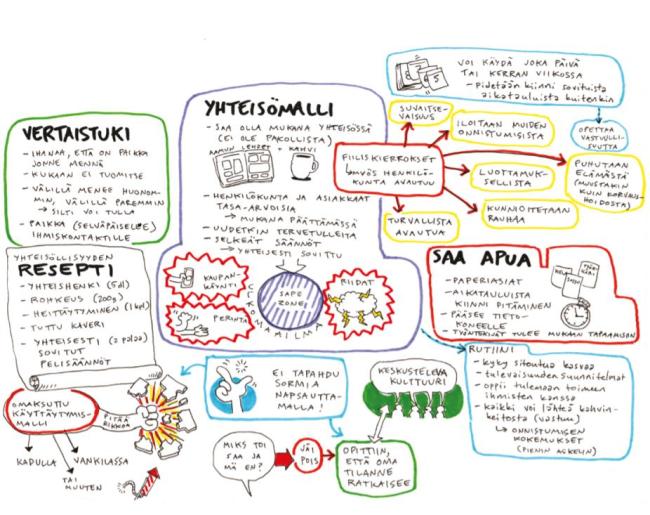 VERTAISTUKI
- IHANAA, ETTÄ ON PAIKKA
JONNE MENNÄ
- KUKAAN EI TUOMITSE
- VÄLILLÄ MENEE HUONOM-
MIN, VÄLILLÄ PAREMMIN
→ SILTI VOI TULLA
- PAIKKA (SELVÄPÄISELLE)
IHMISKONTAKTILLE
YHTEISÖLLISYYDEN
RESEPTI
- YHTEISHENKI (5dl)
- ROHKEUS (200g)
- HEITTÄYTYMINEN (1 kpl)
- TUTTU KAVERI
- YHTEISESTI
SOVITUT
PELISÄÄNNÖT
OMAKSUTTU
KÄYTTÄYTYMIS-
MALLI
PITÄÄ
RIKKOA
KADULLA
VANKILASSA
TAI
MUUTEN
YHTEISÖMALLI
- SAA OLLA MUKANA YHTEISÖSSÄ
(EI OLE PAKOLLISTA)
AAMUN LEHDET + KAHVI
- HENKILÖKUNTA JA ASIAKKAAT
TASA-ARVOISIA
→ MUKANA PÄÄTTÄMÄSSÄ
- UUDETKIN TERVETULLEITA
- SELKEÄT SÄÄNNÖT
→ YHTEISESTI SOVITTU
KAUPAN-
KÄYNTI
PERINTÄ
SAFE
ZONE!
RIIDAT
ULKOMAAILMA
FIILISKIERROKSET
- MYÖS HENKILÖ-
KUNTA AVAUTUU
SUVAITSE-
VAISUUS
ILOITAAN MUIDEN
ONNISTUMISISTA
LUOTTAMUK-
SELLISTA
KUNNIOITETAAN
RAUHAA
TURVALLISTA
AVAUTUA
PUHUTAAN
ELÄMÄSTÄ
(MUUSTAKIN
KUIN KORVAUS-
HOIDOSTA)
VOI KÄYDÄ JOKA PÄIVÄ
TAI KERRAN VIIKOSSA
- Pidetään kiinni sovituista
aikatauluista kuitenkin
OPETTAA
VASTUULLI-
SUUTTA
SAA APUA
- PAPERIASIAT
- AIKATAULUISTA
KIINNI PITÄMINEN
- PÄÄSEE TIETO-
KONEELLE
- TYÖNTEKIJÄT TULEE MUKAAN TAPAAMISIIN
KELA
RUTIINI
- kyky sitoutua kasvaa
- tulevaisuuden suunnitelmat
- oppii tulemaan toimeen
ihmisten kanssa
- kaikki voi lähteä kahvin-
keitosta (vastuu)
↳ ONNISTUMISEN
KOKEMUKSET
(PIENIN ASKELIN)
EI TAPAHDU
SORMIA
NAPSAUTTA-
MALLA!
KESKUSTELEVA
KULTTUURI
MIKS TOI
SAA JA
MÄ EN?
JÄI
POIS
OPITTIIN,
ETTÄ OMA
TILANNE
RATKAISEE